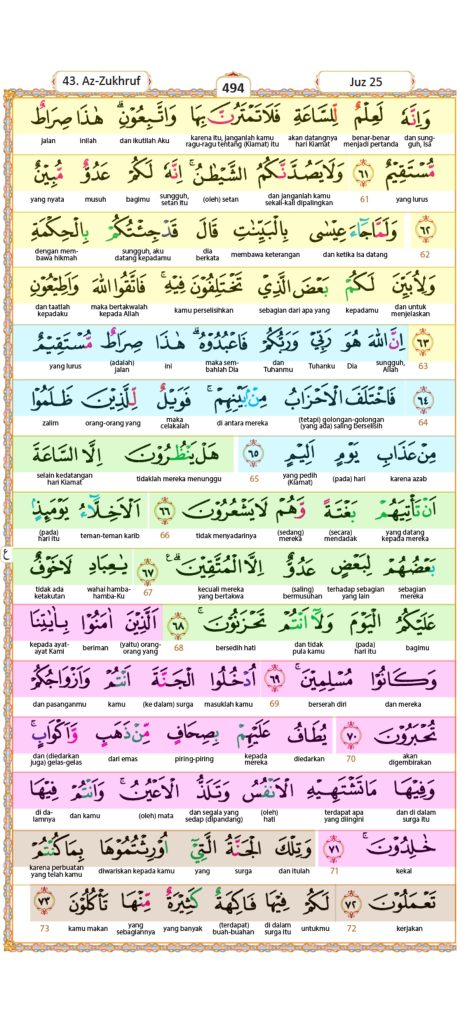 43. Az-Zukhruf
494
Juz 25
وَاِنَّهٗ لَعِلْمٌ لِّلسَّاعَةِ فَلَا تَمْتَرُنَّ بِهَا وَاتَّبِعُوْنِۗ هٰذَا صِرَاطٌ
dan sungguh, Isa benar-benar menjadi pertanda akan datangnya hari Kiamat karena itu, janganlah kamu ragu-ragu tentang (Kiamat) itu dan ikutilah Aku inilah jalan
مُّسْتَقِيْمٌ ٦١ وَلَا يَصُدَّنَّكُمُ الشَّيْطٰنُۚ اِنَّهٗ لَكُمْ عَدُوٌّ مُّبِيْنٌ
yang lurus 61 dan janganlah kamu sekali-kali dipalingkan (oleh) setan sungguh, setan itu bagimu musuh yang nyata
٦٢ وَلَمَّا جَاۤءَ عِيْسٰى بِالْبَيِّنٰتِ قَالَ قَدْ جِئْتُكُمْ بِالْحِكْمَةِ
62 dan ketika Isa datang membawa keterangan dia berkata sungguh, aku datang kepadamu dengan membawa hikmah
وَلِاُبَيِّنَ لَكُمْ بَعْضَ الَّذِيْ تَخْتَلِفُوْنَ فِيْهِۚ فَاتَّقُوا اللّٰهَ وَاَطِيْعُوْنِ
dan untuk menjelaskan kepadamu sebagian dari apa yang kamu perselisihkan maka bertakwalah kepada Allah dan taatlah kepadaku
٦٣ اِنَّ اللّٰهَ هُوَ رَبِّيْ وَرَبُّكُمْ فَاعْبُدُوْهُۗ هٰذَا صِرَاطٌ مُّسْتَقِيْمٌ
63 sungguh, Allah Dia Tuhanku dan Tuhanmu maka sembahlah Dia ini (adalah) jalan yang lurus
٦٤ فَاخْتَلَفَ الْاَحْزَابُ مِنْۢ بَيْنِهِمْۚ فَوَيْلٌ لِّلَّذِيْنَ ظَلَمُوْا
64 (tetapi) golongan-golongan (yang ada) saling berselisih di antara mereka maka celakalah orang-orang yang zalim
مِنْ عَذَابِ يَوْمٍ اَلِيْمٍ ٦٥ هَلْ يَنْظُرُوْنَ اِلَّا السَّاعَةَ
karena azab (pada) hari yang pedih (Kiamat) 65 tidaklah mereka menunggu selain kedatangan hari Kiamat
اَنْ تَأْتِيَهُمْ بَغْتَةً وَّهُمْ لَا يَشْعُرُوْنَ ٦٦ اَلْاَخِلَّاۤءُ يَوْمَىِٕذٍۢ
yang datang kepada mereka (secara) mendadak (sedang) mereka tidak menyadarinya 66 teman-teman karib (pada) hari itu
بَعْضُهُمْ لِبَعْضٍ عَدُوٌّ اِلَّا الْمُتَّقِيْنَۗ ٦٧ يٰعِبَادِ لَا خَوْفٌ
sebagian mereka terhadap sebagian yang lain (saling) bermusuhan kecuali mereka yang bertakwa 67 wahai hamba-hamba-Ku tidak ada ketakutan
ع
عَلَيْكُمُ الْيَوْمَ وَلَآ اَنْتُمْ تَحْزَنُوْنَۚ ٦٨ اَلَّذِيْنَ اٰمَنُوْا بِاٰيٰتِنَا
bagimu (pada) hari itu dan tidak pula kamu bersedih hati 68 (yaitu) orang-orang yang beriman kepada ayat-ayat Kami
وَكَانُوْا مُسْلِمِيْنَۚ ٦٩ اُدْخُلُوا الْجَنَّةَ اَنْتُمْ وَاَزْوَاجُكُمْ
dan mereka berserah diri 69 masuklah kamu (ke dalam) surga kamu dan pasanganmu
تُحْبَرُوْنَ ٧٠ يُطَافُ عَلَيْهِمْ بِصِحَافٍ مِّنْ ذَهَبٍ وَّاَكْوَابٍۚ
akan digembirakan 70 diedarkan kepada mereka piring-piring dari emas dan (diedarkan juga) gelas-gelas
وَفِيْهَا مَا تَشْتَهِيْهِ الْاَنْفُسُ وَتَلَذُّ الْاَعْيُنُۚ وَاَنْتُمْ فِيْهَا
dan di dalam surga itu terdapat apa yang diingini (oleh) hati dan segala yang sedap (dipandang) (oleh) mata dan kamu di dalamnya
خٰلِدُوْنَۚ ٧١ وَتِلْكَ الْجَنَّةُ الَّتِيْٓ اُوْرِثْتُمُوْهَا بِمَا كُنْتُمْ
kekal 71 dan itulah surga yang diwariskan kepada kamu karena perbuatan yang telah kamu
تَعْمَلُوْنَ ٧٢ لَكُمْ فِيْهَا فَاكِهَةٌ كَثِيْرَةٌ مِّنْهَا تَأْكُلُوْنَ ٧٣
kerjakan 72 untukmu di dalam surga itu (terdapat) buah-buahan yang banyak yang sebagiannya kamu makan 73